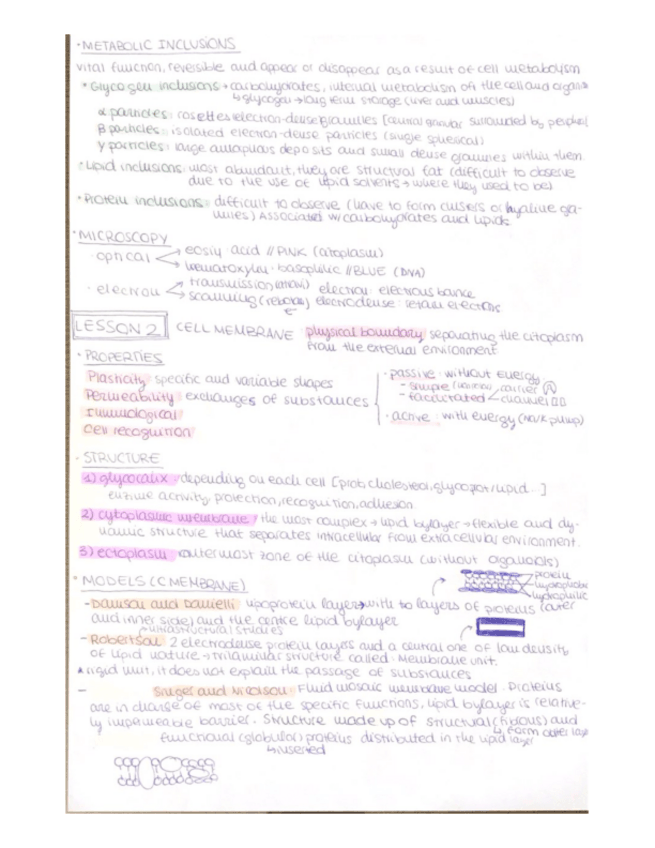 · METABOLIC INCLUSIONS
vital function, reversible and appear or disappear as a result of cell metabolism
• Glycogen inclusions → carbohydrates, internal metabolism of the cell and
↳ glycogen → long term storage (liver and muscles)
α particles: rosettes electron-dense granules [central granular surrounded by
β particles: isolated electron-dense particles (single spherical)
γ particles: large deposits and small dense granules within them
• Lipid inclusions: most abundant, they are structural fat (difficult to observe
due to the use of lipid solvents → where they used to be)
• Protein inclusions: difficult to observe (have to form or hyaline gra-
nules) Associated w/ carbohydrates and lipids
· MICROSCOPY
· optical
eosin · acid // PINK (citoplasm)
hematoxylin · basophilic // BLUE (DNA)
· electron
transmission electron
scanning electrodense: retain electrons
LESSON 2 CELL MEMBRANE: physical boundary separating the citoplasm
from the external environment
· PROPERTIES
Plasticity specific and variable shapes
Permeability exchanges of substances
Immunological
Cell recognition
· passive: without energy
- simple carrier
- facilitated channel
· active: with energy (Na/K pump)
· STRUCTURE
1) glycocalix / depending on each cell
enzime activity, protection, recognition, adhesion
2) cytoplasmic membrane / the most complex → lipid bylayer → flexible and dy-
namic structure that separates intracellular from extracellular environment.
3) ectoplasm outermost zone of the citoplasm (without organoids)
· MODELS (C MEMBRANE)
protein
hydrophobic
hydrophilic
- Danson and Danielli lipoprotein layer → with to layers of proteins (outer
and inner side) and the centre lipid bylayer
ultrastructural studies
- Robertson 2 electrodense protein layers and a central one of low density
of lipid nature → trilaminar structure called: Membrane unit.
rigid unit, it does not explain the passage of substances
- Singer and Nicolson: Fluid mosaic membrane model. Proteins
are in charge of most of the specific functions, lipid bylayer is relative-
ly impermeable barrier. Structure made up of structural (fibrous) and
↳ form outer layer
functional (globular) proteins distributed in the lipid layer
↳ inserted